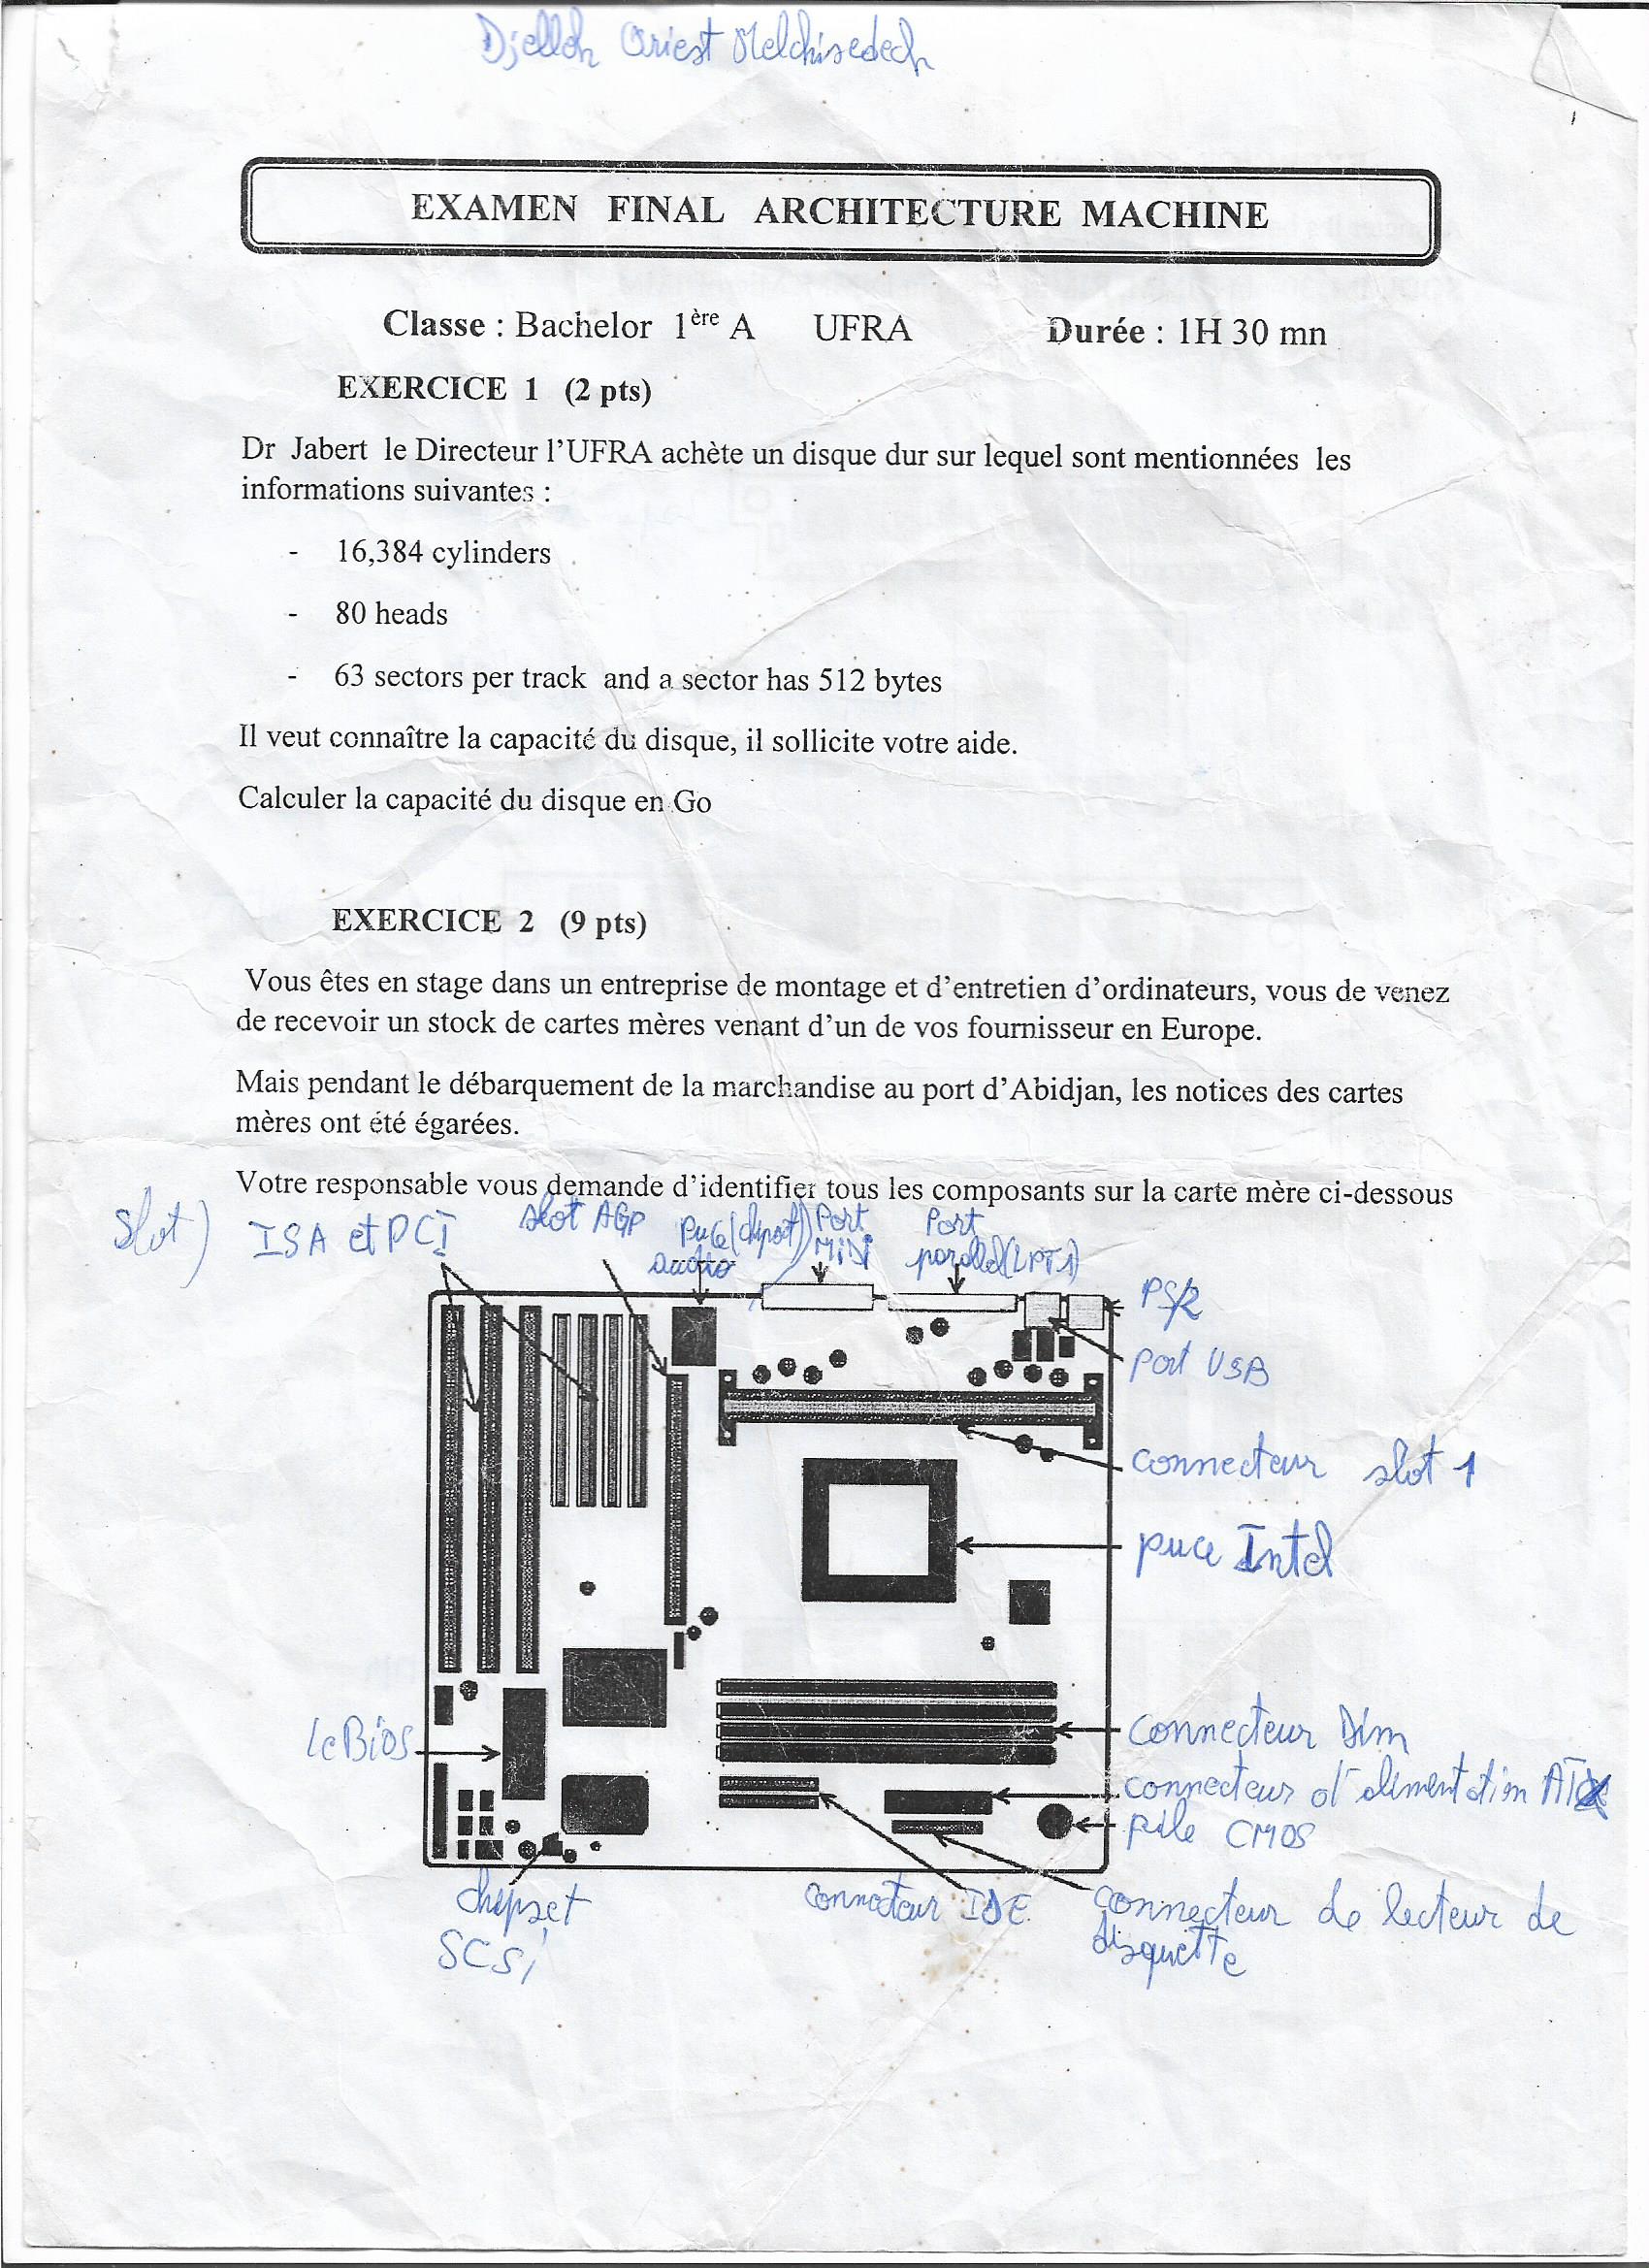 Djelloh Oriest Melchisedech
EXAMEN FINAL ARCHITECTURE MACHINE
Classe : Bachelor 1ère A UFRA Durée : 1H 30 mn
EXERCICE 1 (2 pts)
Dr Jabert le Directeur l'UFRA achète un disque dur sur lequel sont mentionnées les
informations suivantes :
- 16,384 cylinders
- 80 heads
- 63 sectors per track and a sector has 512 bytes
Il veut connaître la capacité du disque, il sollicite votre aide.
Calculer la capacité du disque en Go
EXERCICE 2 (9 pts)
Vous êtes en stage dans un entreprise de montage et d'entretien d'ordinateurs, vous de venez
de recevoir un stock de cartes mères venant d'un de vos fournisseur en Europe.
Mais pendant le débarquement de la marchandise au port d'Abidjan, les notices des cartes
mères ont été égarées.
Votre responsable vous demande d'identifier tous les composants sur la carte mère ci-dessous
Slot) ISA et PCI
slot AGP
puce (chipset)
audio
Port
MiDi
Port
parallel (LPT1)
PS/2
port USB
connecteur slot 1
puce Intel
le Bios
connecteur Dim
connecteur d'alimentation ATX
pile CMOS
chipset
SCSi
connecteur IDE
connecteur de lecteur de
disquette